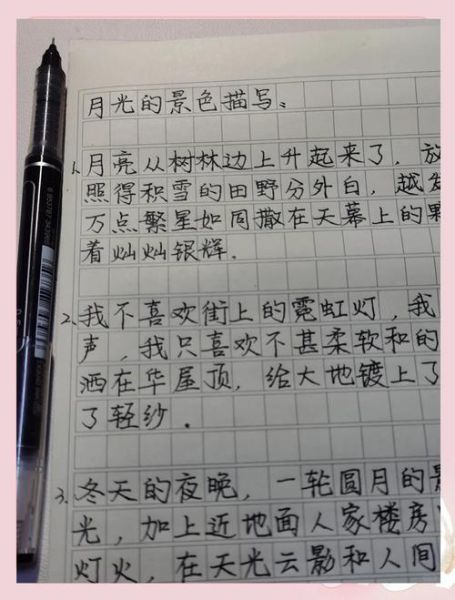 月光的景色描写。
1.月亮从树林边上升起来了,放
照得积雪的田野分外白,越发
万点繁星如同撒在天幕上的颗
着灿灿银辉.
2.我不喜欢街上的霓虹灯,我
声,我只喜欢不甚柔软和的
洒在华屋顶,给大地镀上了
了轻纱.
3.冬天的夜晚,一轮圆月的
光,加上近地面人家楼房
灯火,在天光云影和人间